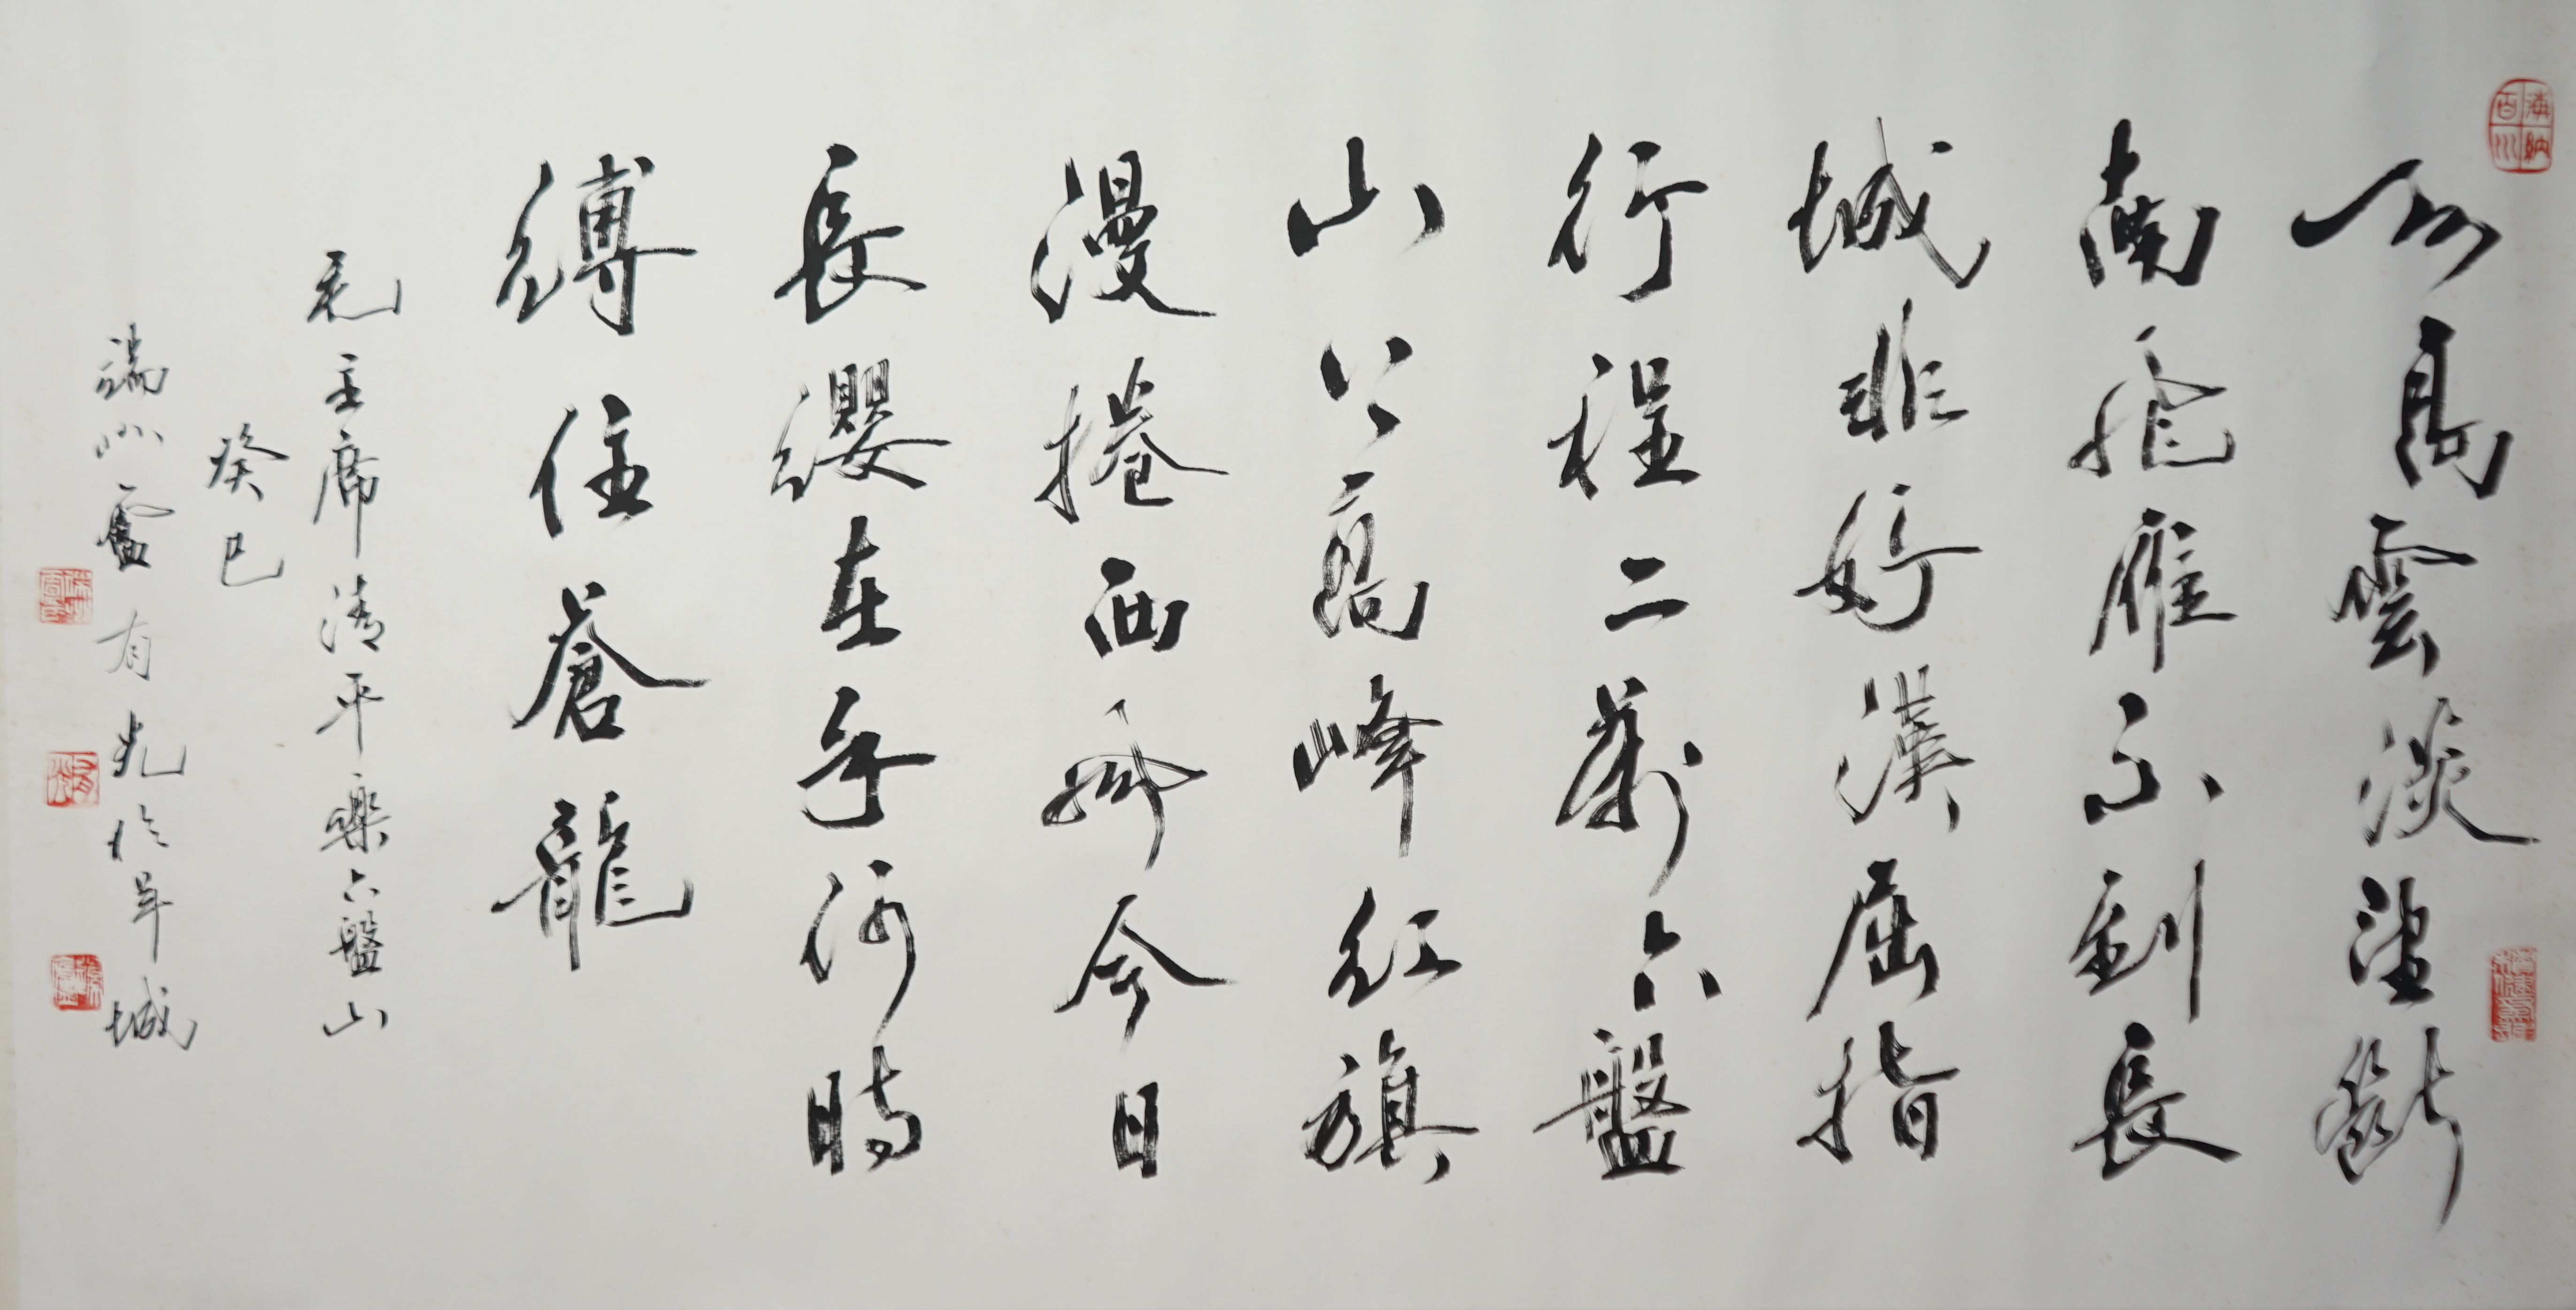 海納百川
天高雲淡望斷
南飛雁不到長
城非好漢屈指
行程二萬六盤
山上高峰紅旗
漫捲西風今日
長纓在手何時
縛住蒼龍
毛主席清平樂六盤山
癸巳
端州盧有光於羊城